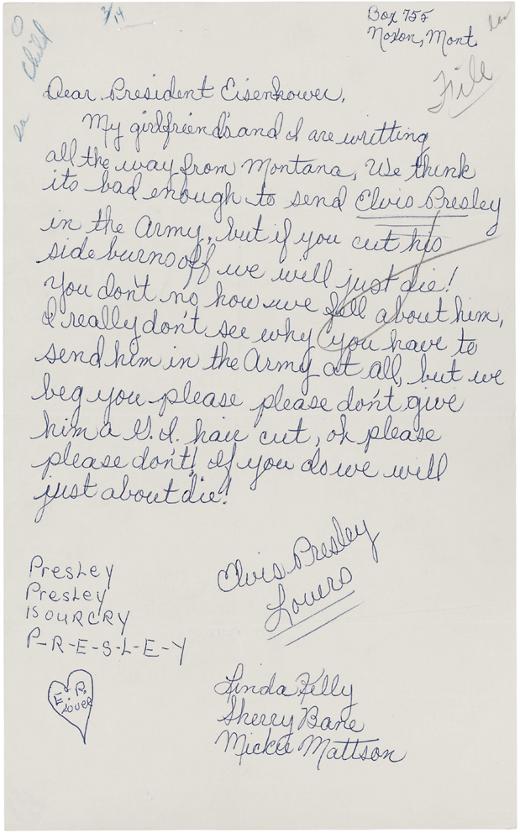 3/14
Child
Box 755
Noxon, Mont
File
Dear President Eisenhower,
My girlfriend's and I are writting
all the way from Montana, We think
its bad enough to send Elvis Presley
in the Army, but if you cut his
side burns off we will just die!
You don't no how we fell about him,
I really don't see why you have to
send him in the Army at all, but we
beg you please please don't give
him a G.I. hair cut, oh please
please don't! If you do we will
just about die!
Elvis Presley
Lovers
Presley
Presley
IS OUR CRY
P-R-E-S-L-E-Y
E. P.
Lover
Linda Kelly
Sherry Bane
Mickie Mattson